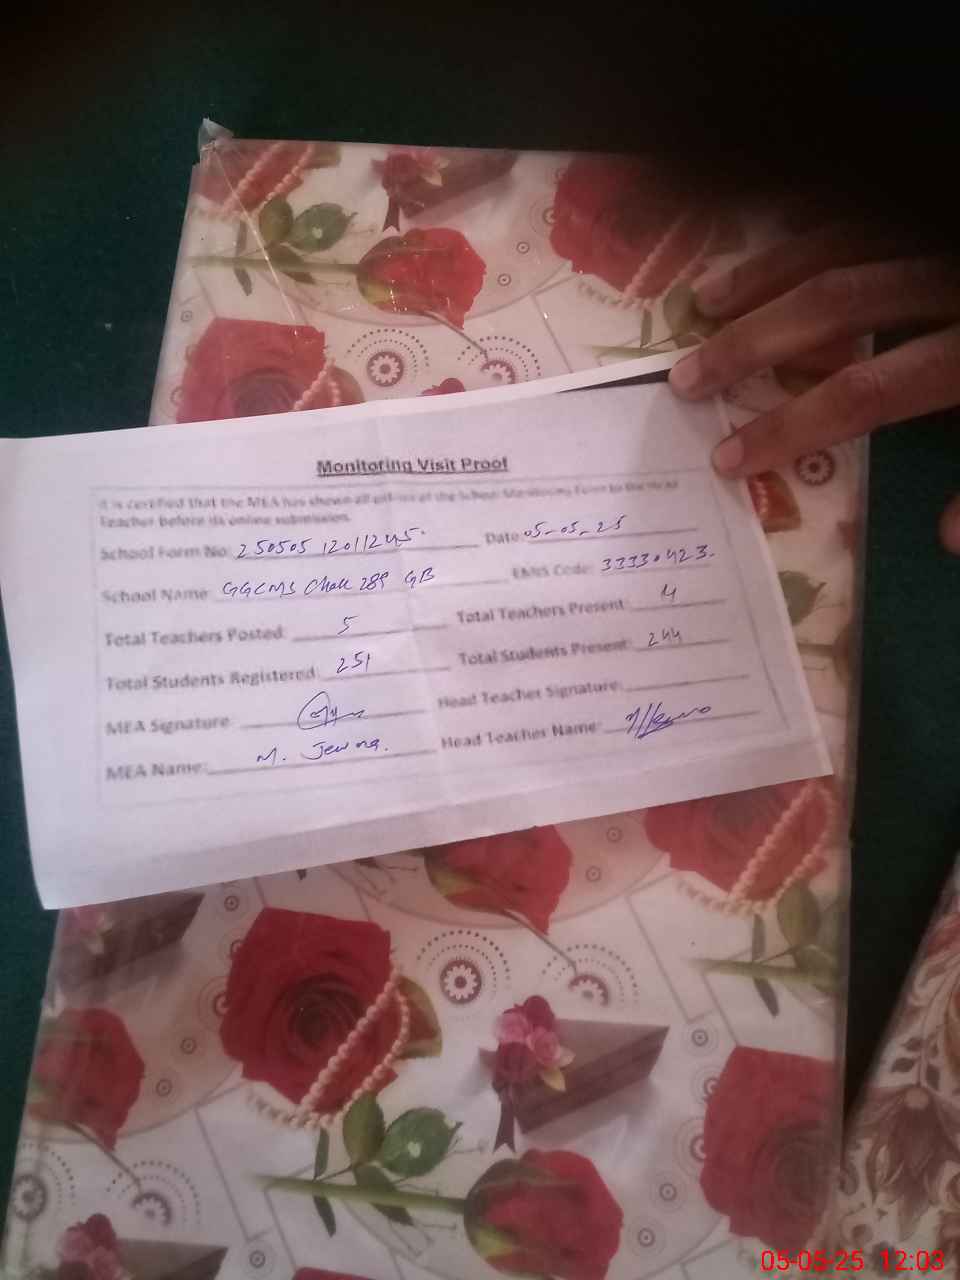 Monitoring Visit Proof
It is certified that the MEA has shown all entries of the School Monitoring Form to the Head
Teacher before its online submission.
School Form No: 250505 12011245 Date: 05-05-25
School Name: GGCMS Chak 289 GB EMIS Code: 33330423
Total Teachers Posted: 5 Total Teachers Present: 4
Total Students Registered: 251 Total Students Present: 244
MEA Signature: Head Teacher Signature:
MEA Name: M. Head Teacher Name:
05-05-25 12:03